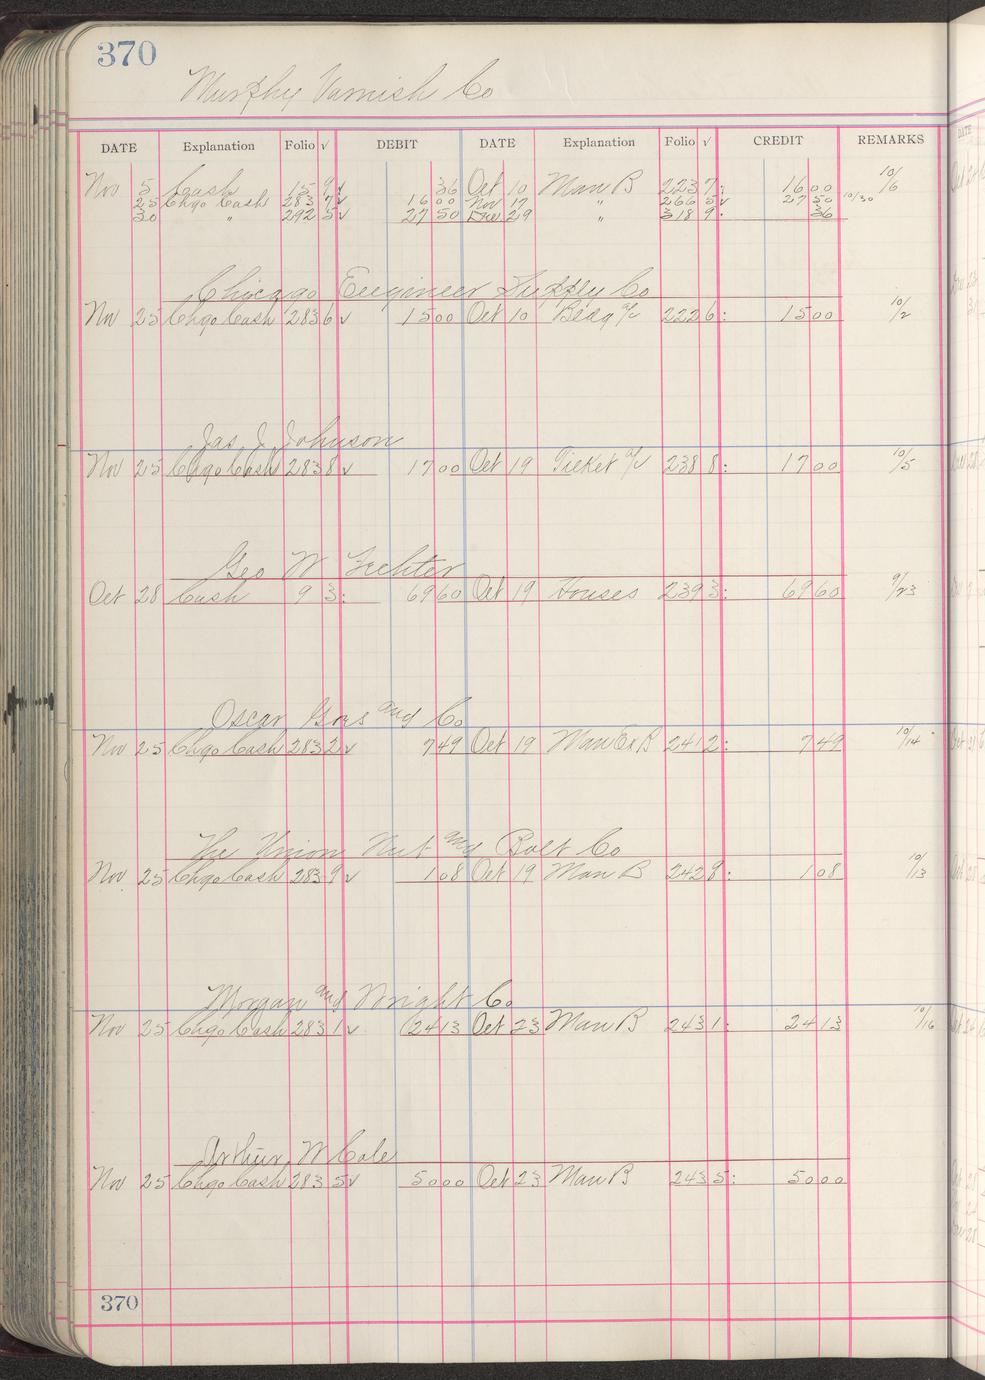 370
Murphy Varnish Co
DATE Explanation Folio √ DEBIT DATE Explanation Folio √ CREDIT REMARKS
Nov 5 Cash 15 9 √ 36 Oct 10 Man B 223 7: 16 00 10/6
25 Chgo Cash 283 7 √ 16 00 Nov 17 " 266 5 √ 27 50 10/30
30 " 292 5 √ 27 50 Dec 29 " 318 9. 36
Chicago Engineer Supply Co
Nov 25 Chgo Cash 283 6 √ 15 00 Oct 10 Bldg a/c 222 6: 15 00 10/2
Jas J Johnson
Nov 25 Chgo Cash 283 8 √ 17 00 Oct 19 Ticket a/c 238 8: 17 00 10/5
Geo W
Oct 28 Cash 9 3: 69 60 Oct 19 Houses 239 3: 69 60 9/23
Oscar and Co
Nov 25 Chgo Cash 283 2 √ 7 49 Oct 19 Man Ex B 241 2: 7 49 10/14
The Union Nut and Bolt Co
Nov 25 Chgo Cash 283 9 √ 1 08 Oct 19 Man B 242 9: 1 08 10/13
Morgan and Wright Co
Nov 25 Chgo Cash 283 1 √ 24 13 Oct 23 Man B 243 1: 24 13 10/16
Arthur W Cole
Nov 25 Chgo Cash 283 5 √ 50 00 Oct 23 Man B 243 5: 50 00
370